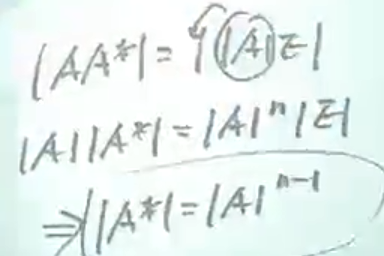 |AA*| = ||A|E|
|A||A*| = |A|ⁿ|E|
⇒ |A*| = |A|ⁿ⁻¹